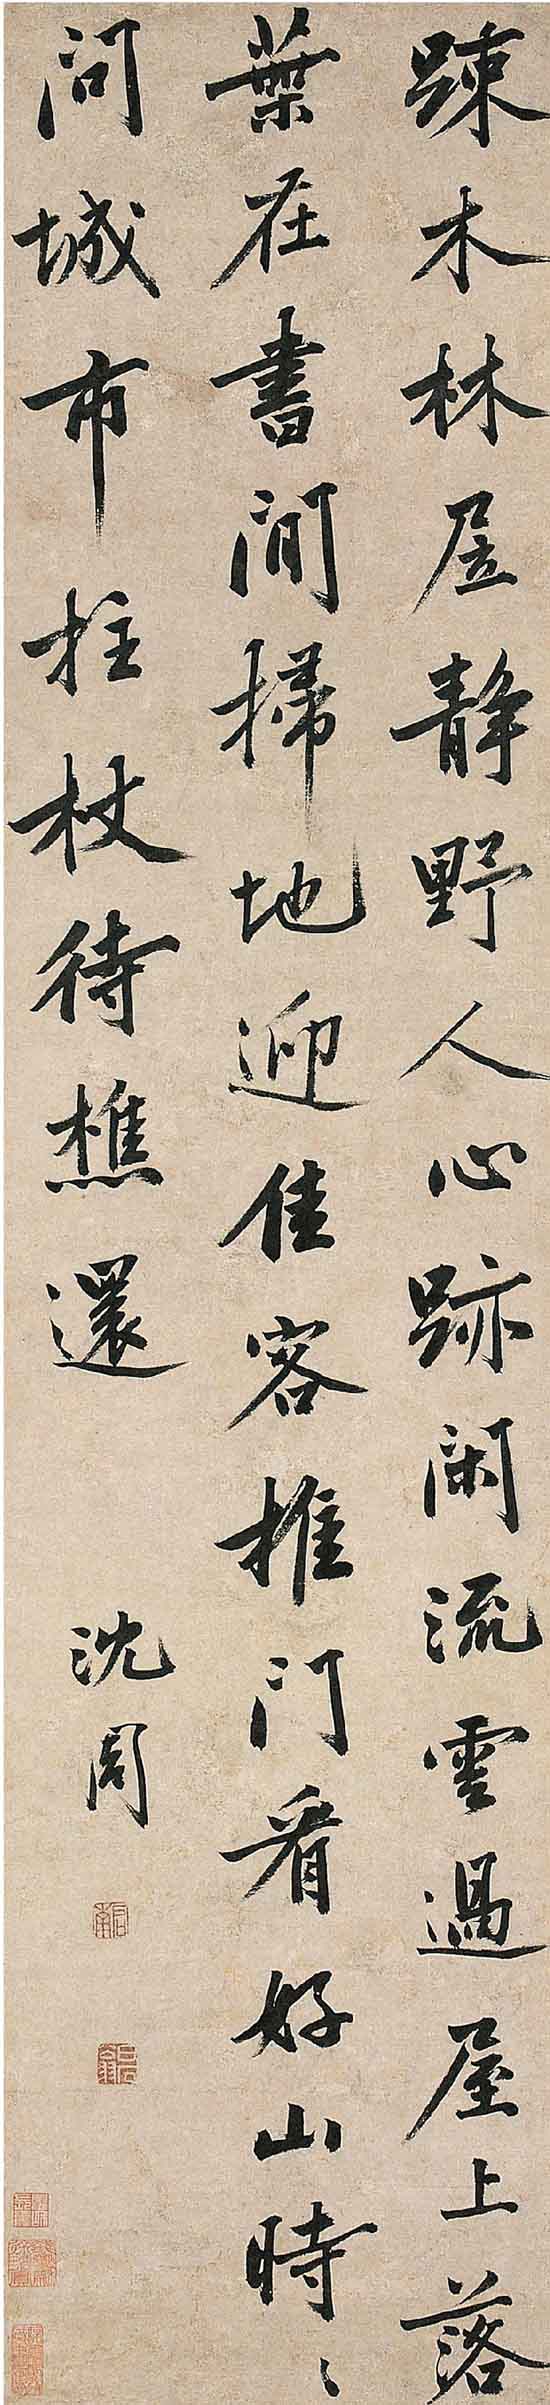 踈木林居静野人心跡閑流雲過屋上落
葉在書間掃地迎佳客推門看好山時〻
問城市拄杖待樵還
沈周
启南
白石翁